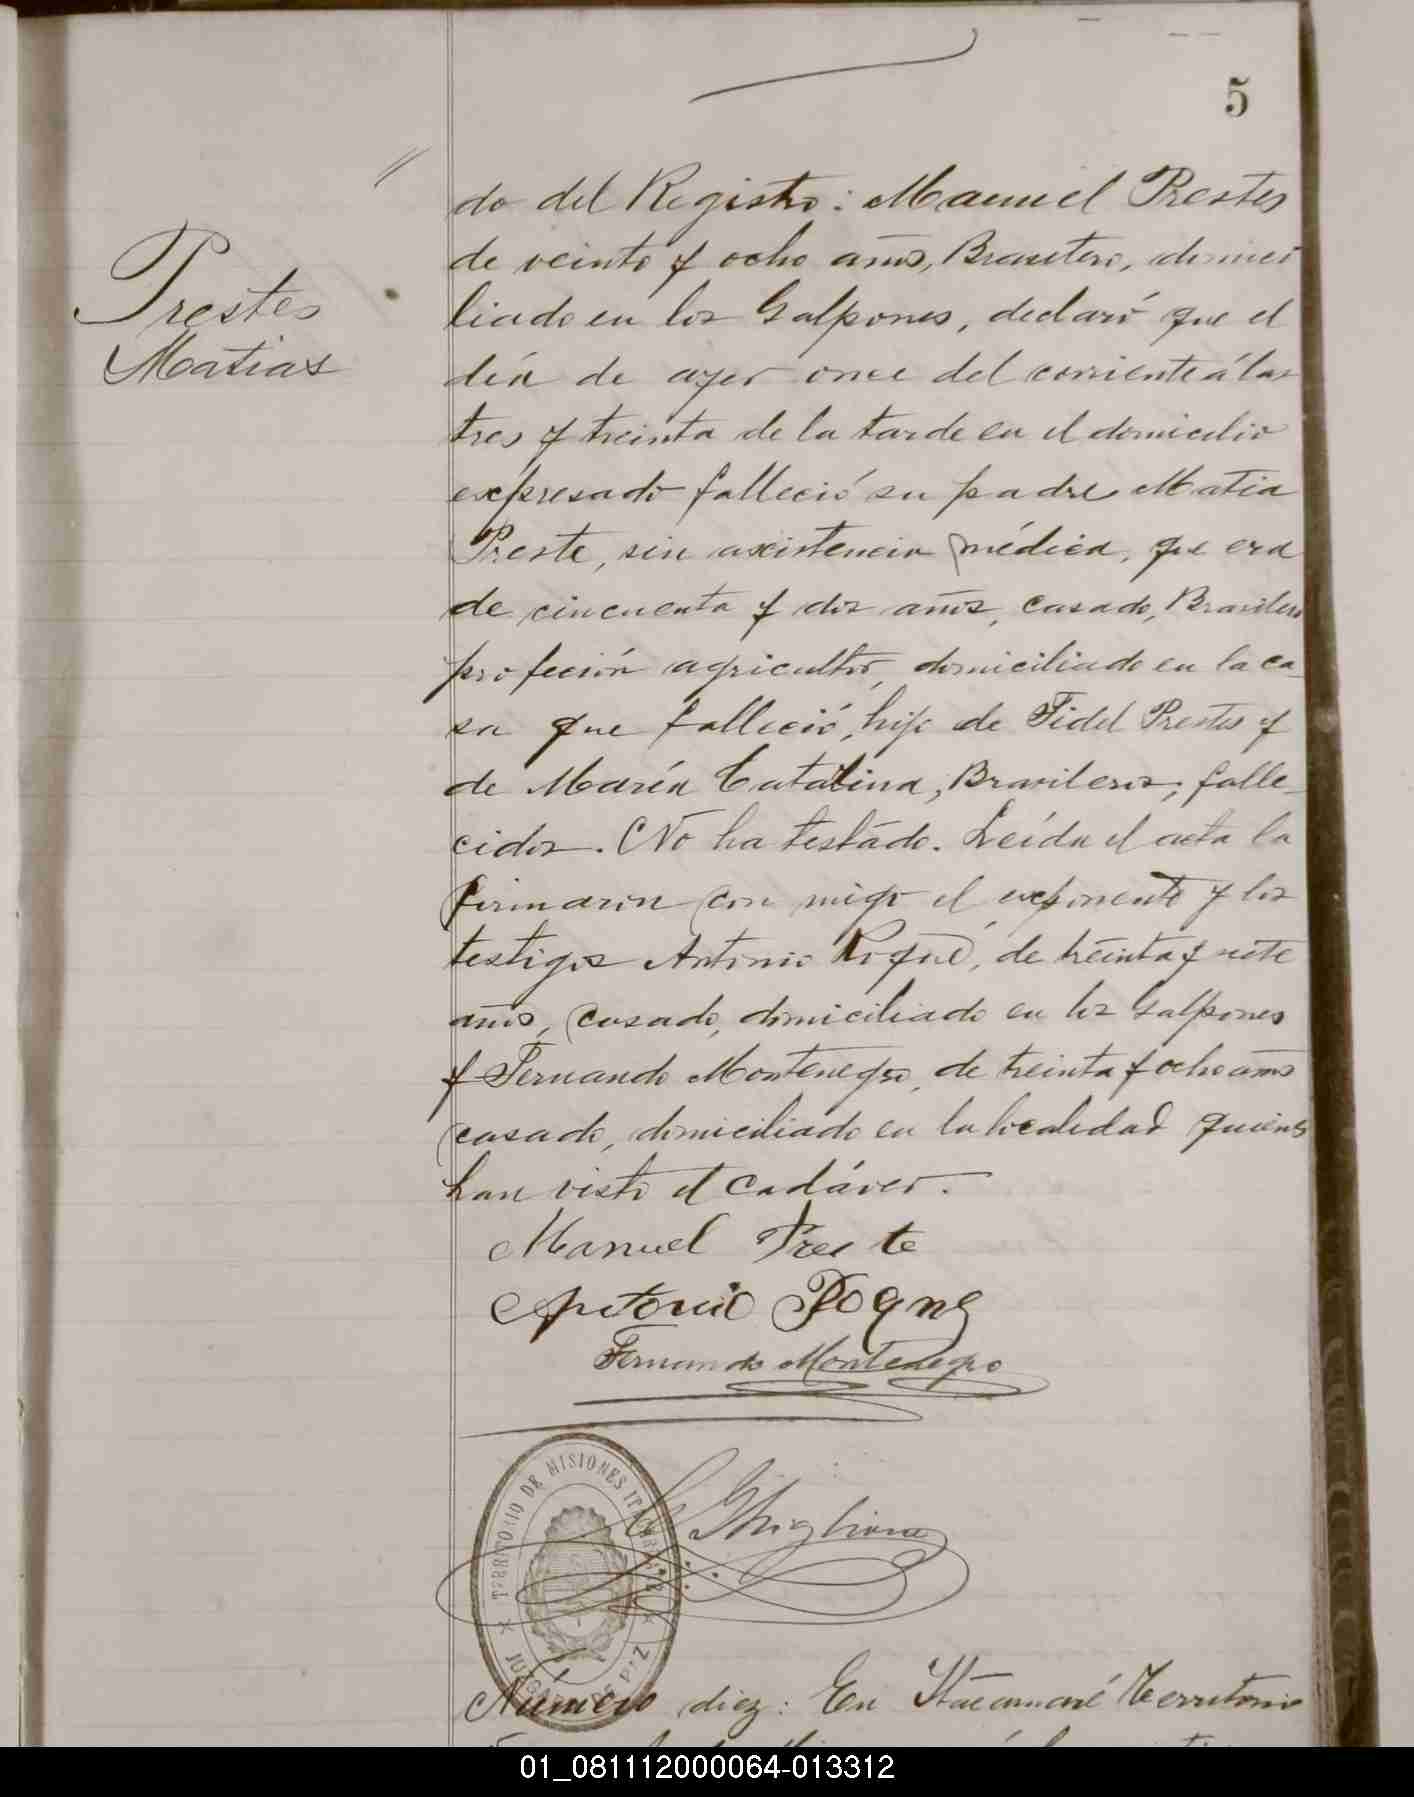 5
Prestes
Matias
do del Registro: Manuel Prestes
de veinte y ocho años, Brasilero, domici
liado en los Galpones, declaró que el
día de ayer once del corriente á las
tres y treinta de la tarde en el domicilio
expresado falleció su padre Matia
Preste, sin asistencia médica, que era
de cincuenta y dos años, casado, Brasilero
profeción agricultor, domiciliado en la ca-
sa que falleció, hijo de Fidel Prestes y
de María Catalina, Brasileros, falle-
cidos. No ha testado. Leída el acta la
firmaron con migo el exponente y los
testigos Antonio Roqué, de treinta y siete
años, casado, domiciliado en los Galpones
y Fernando Montenegro, de treinta y ocho años
casado, domiciliado en la localidad quienes
han visto el cadáver.
Manuel Preste
Antonio Roque
Fernando Montenegro
Ghiglione
TERRITORIO DE MISIONES
JUZGADO DE PAZ
Número diez: En Itacaruaré Territorio
01_081112000064-013312